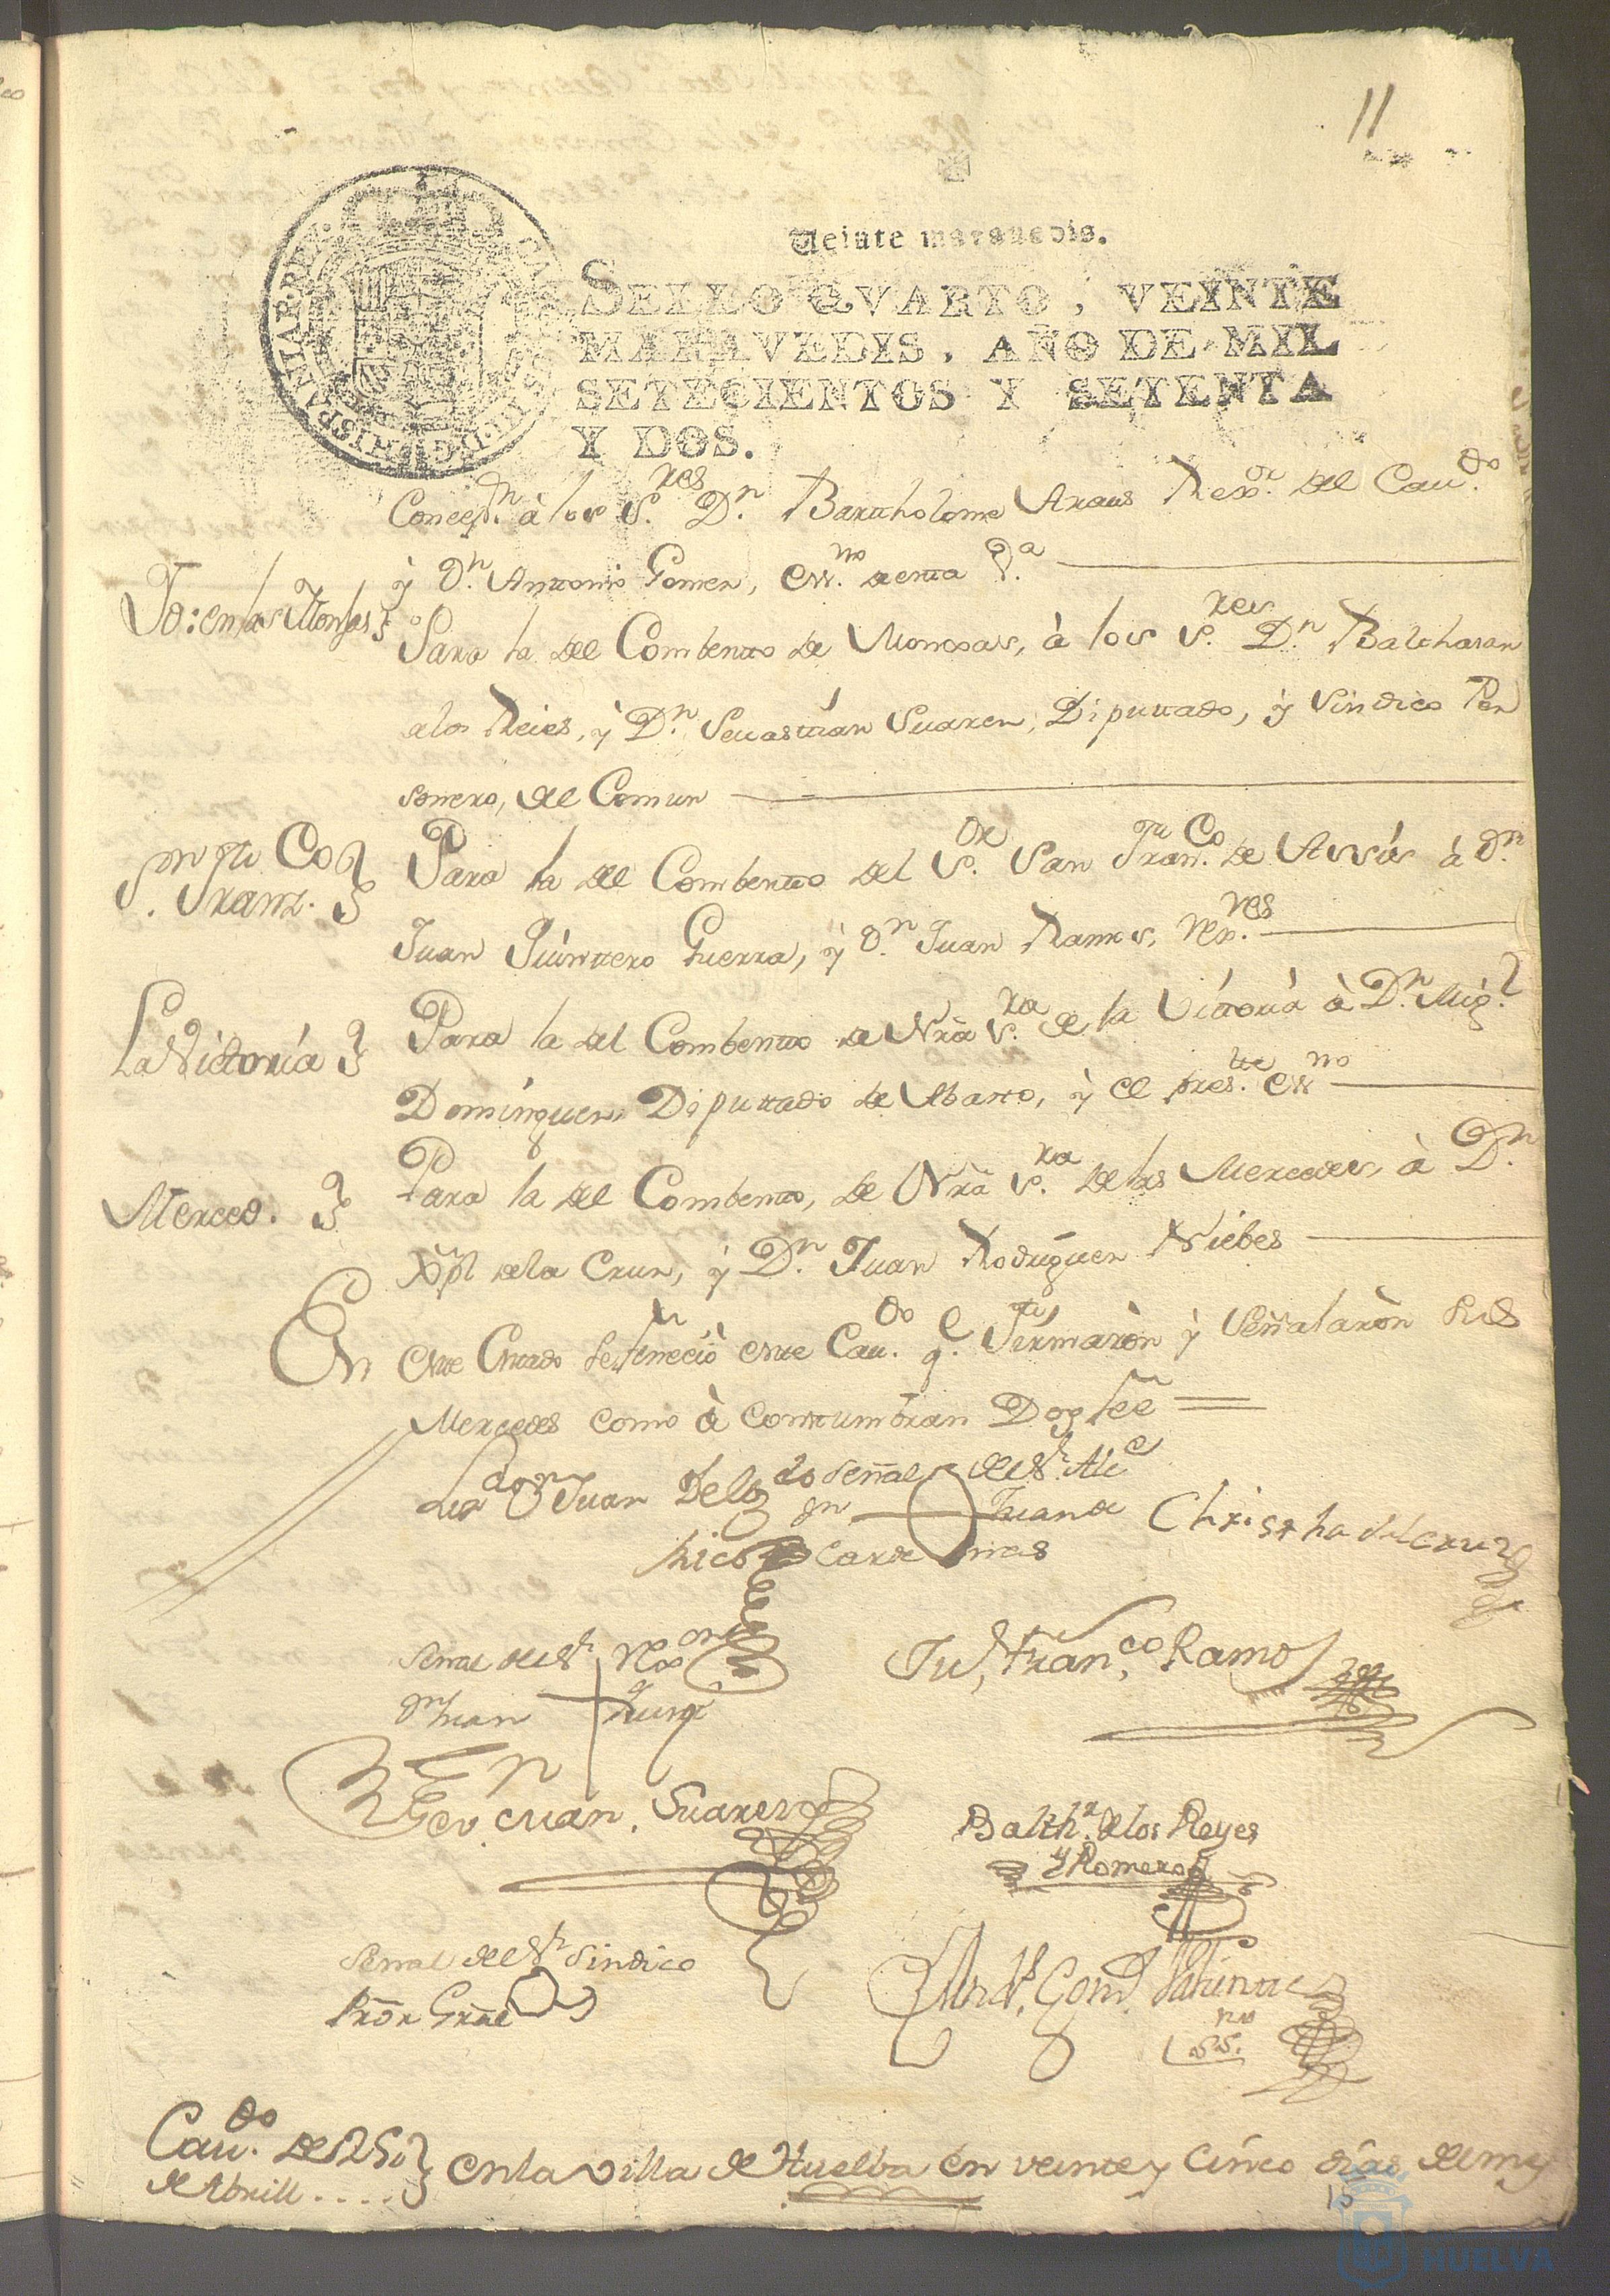 11
Veinte maravedis.
SELLO QVARTO, VEINTE
MARAVEDIS, AÑO DE MIL
SETECIENTOS Y SETENTA
Y DOS.
Concepn. à los S.res Dn. Bartholome Araus Rexor. del Cau.do
y Dn. Anttonio Gomez, Ess.no de esta V.a
Yd: en las Monjas
Para la del Combentto de Monxas, à los S.res Dn. Balthasar
de los Reies, y Dn. Sevastián Suarez, Diputtado, y Sindico Per
sonero, del Comun
Sn. Franz.co
Para la del Combentto del S.or San Fran.co de Assis à Dn.
Juan Quinttero Guerra, y Dn. Juan Ramos, Rex.res
La Victoria
Para la del Combentto de Nra S.ra de la Vitoria à Dn. Mig.l
Dominguez, Diputtado de Abasto, y el pres.tte Ess.no
Merced.
Para la del Combentto, de Nra S.ra de las Mercedes, à Dn.
Xptl de la Cruz, y Dn. Juan Rodriguez Niebes
En este Estado se feneció este Cau.do q.e firmaròn y Señalaròn sus
Mercedes como à costumbran Doy feè
Juan señal del Sr. Alc.e
Juan de
Cardenas
Christha de la Cruz
Señal del Sr. Rexor
Dn Juan
Ju, Fran,co Ramos
Sevastian Suarez
Balth.r de los Reyes
y Romero
Señal del Sr Sindico
Pror Gral
Cau.do de 25
de Abrill....
en la villa de Huelba en veinte y Cinco dias del ms
HUELVA